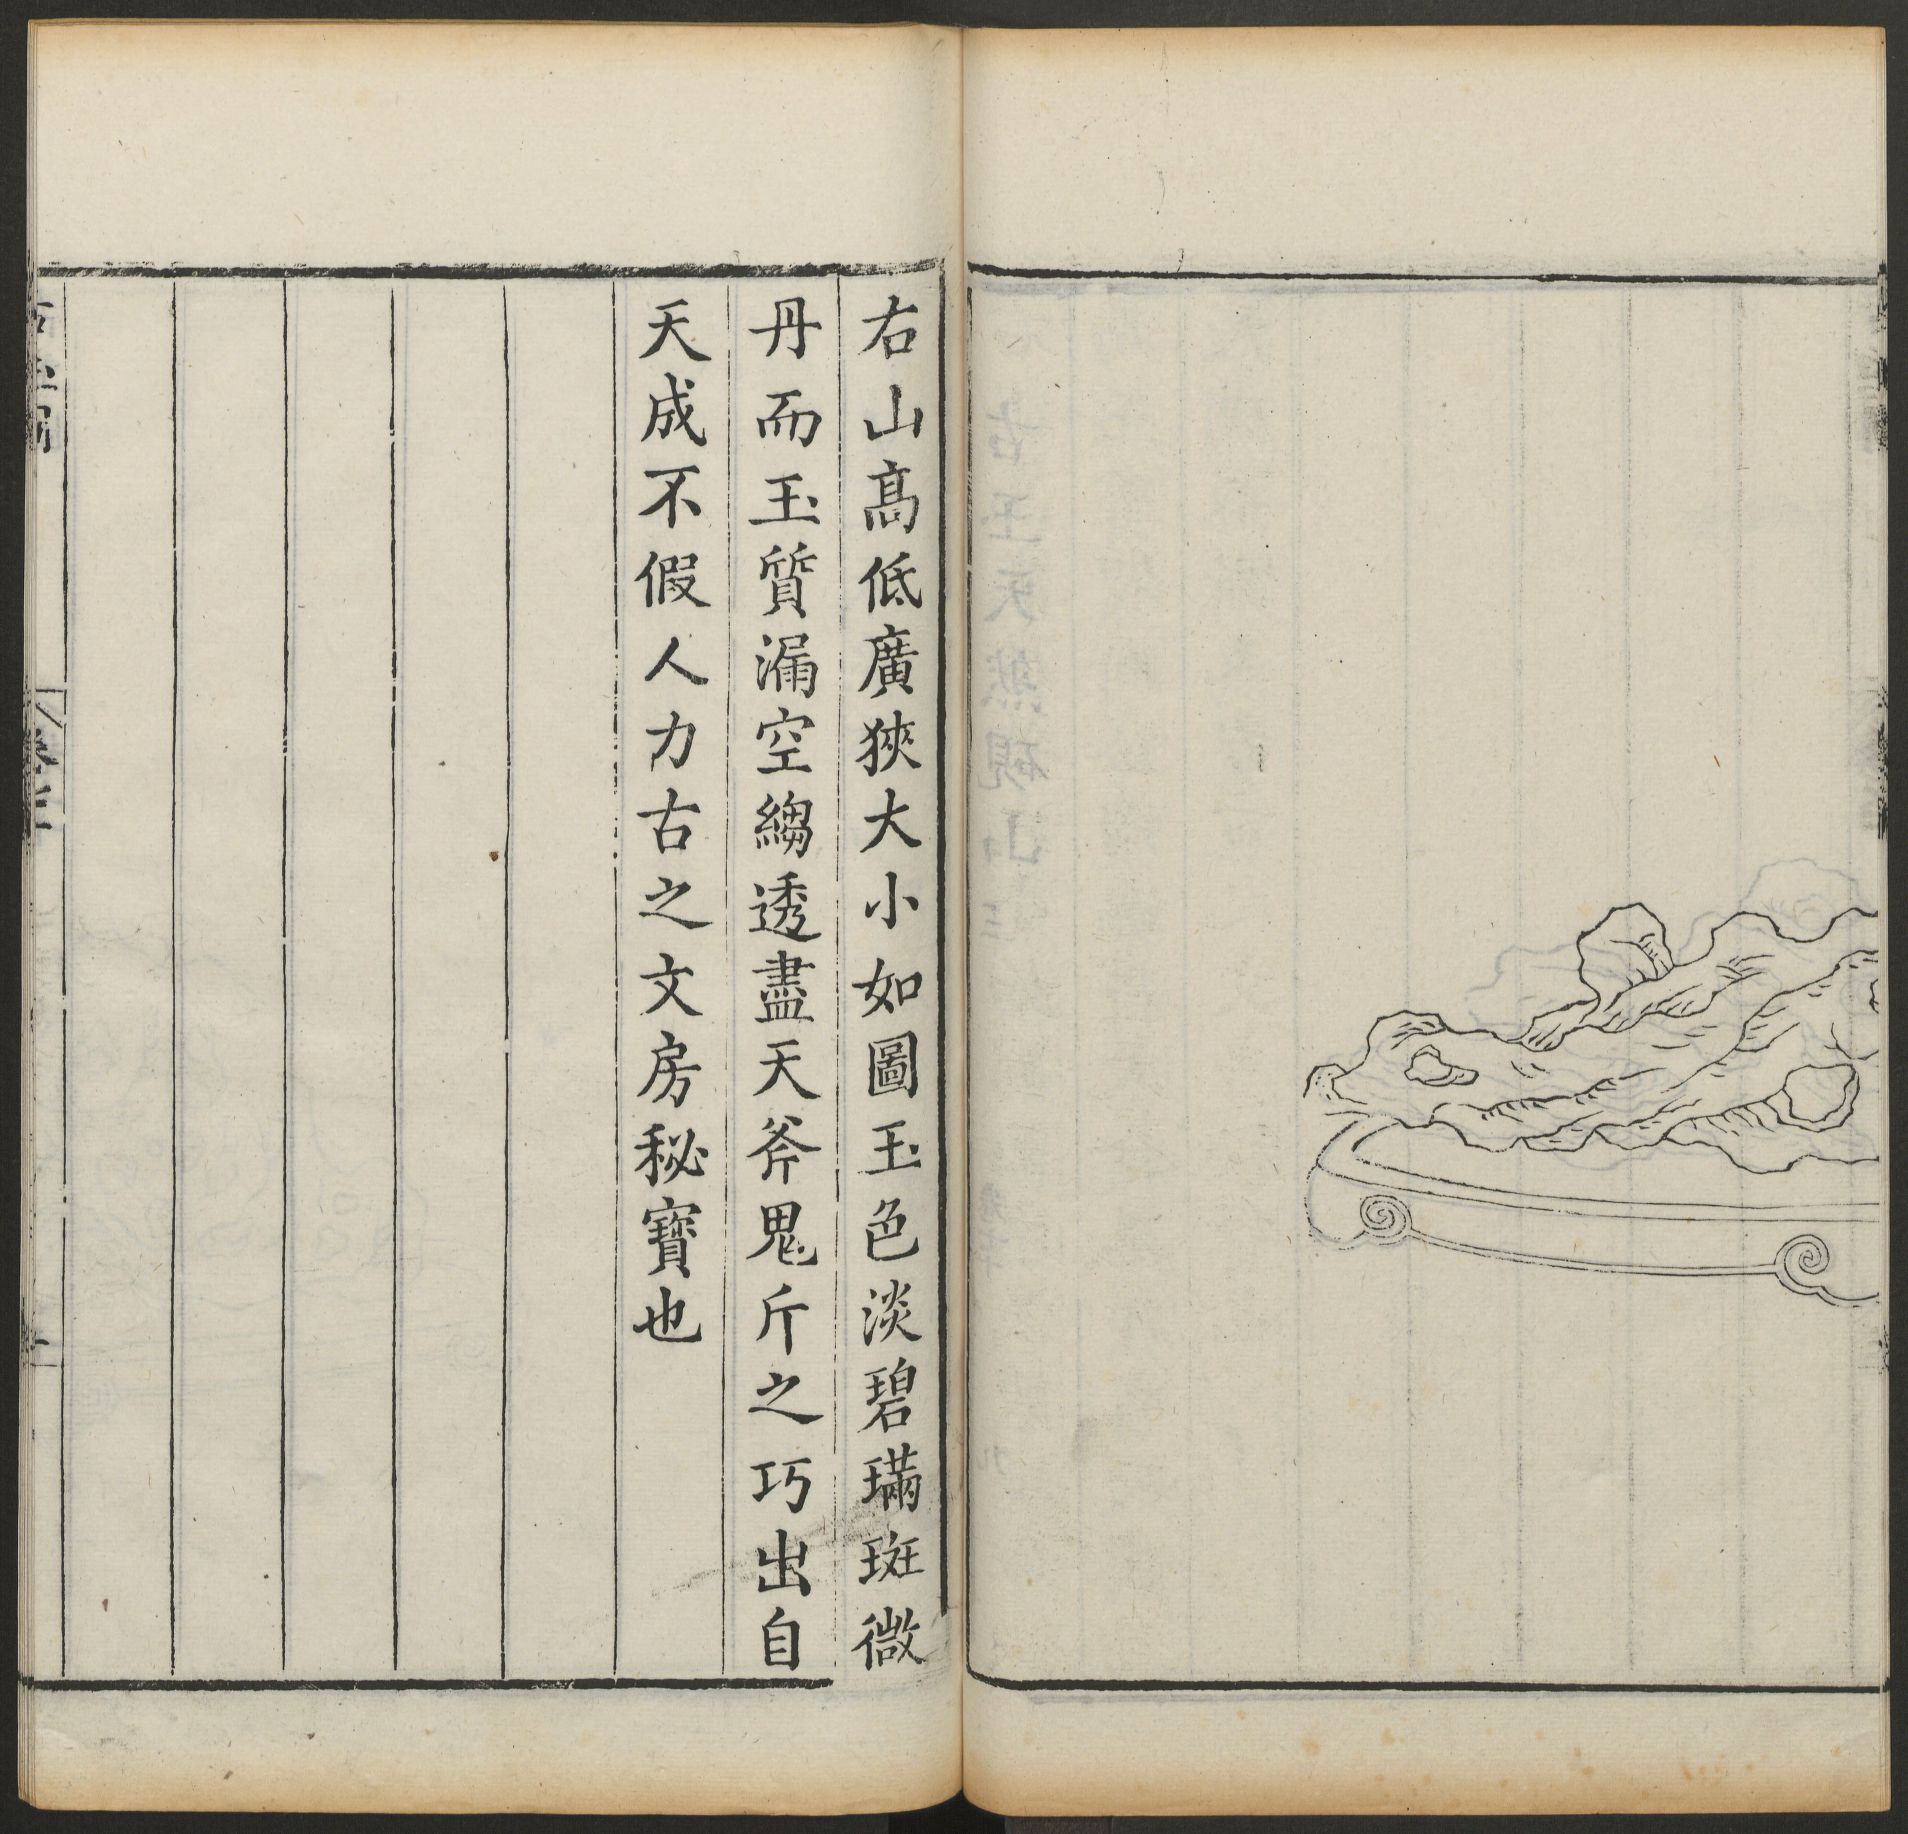 右山高低廣狹大小如圖玉色淡碧璊斑微
丹而玉質漏空縐透盡天斧鬼斤之巧出自
天成不假人力古之文房秘寶也
卷三